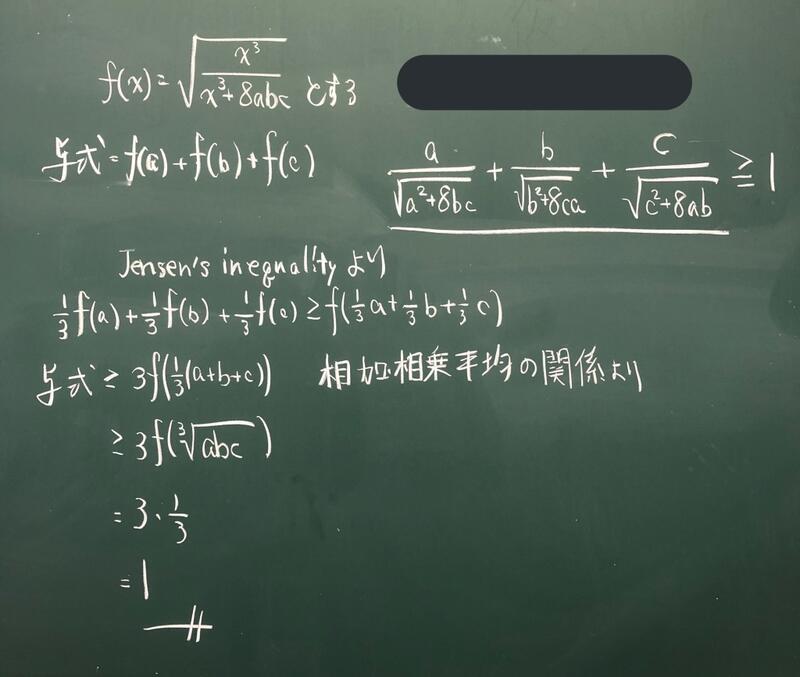 f(x)=√(x³/(x³+8abc)) とする
与式=f(a)+f(b)+f(c)
a/√(a²+8bc) + b/√(b²+8ca) + c/√(c²+8ab) ≧ 1
Jensen's inequality より
1/3 f(a)+1/3 f(b)+1/3 f(c) ≥ f(1/3 a+1/3 b+1/3 c)
与式 ≥ 3f(1/3(a+b+c)) 相加相乗平均の関係より
≥ 3f(³√abc)
= 3・1/3
= 1